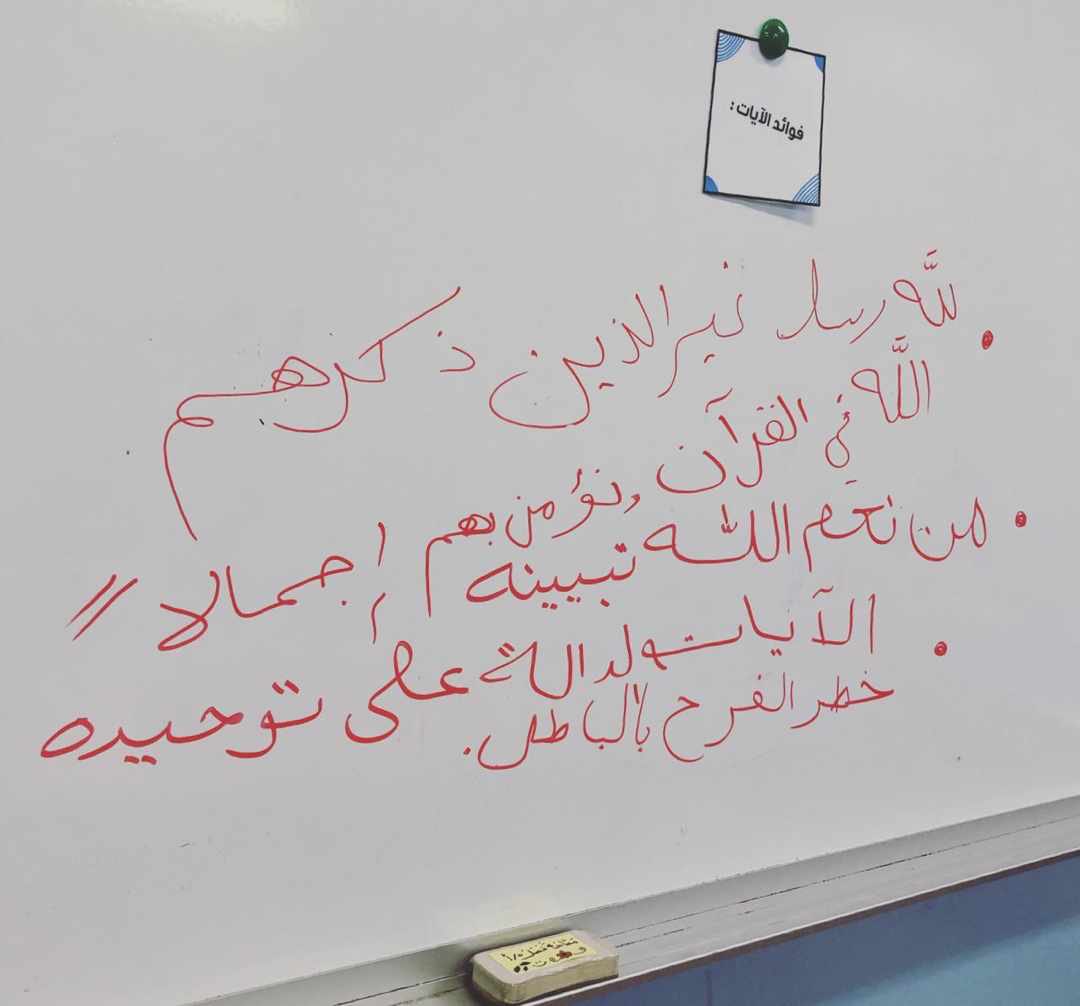 فوائد الآيات :
• لله رسل غير الذين ذكرهم
الله في القرآن ونؤمن بهم إجمالا //
• من نعم الله تبيينه
الآيات الدالة على توحيده
• خطر الفرح بالباطل.